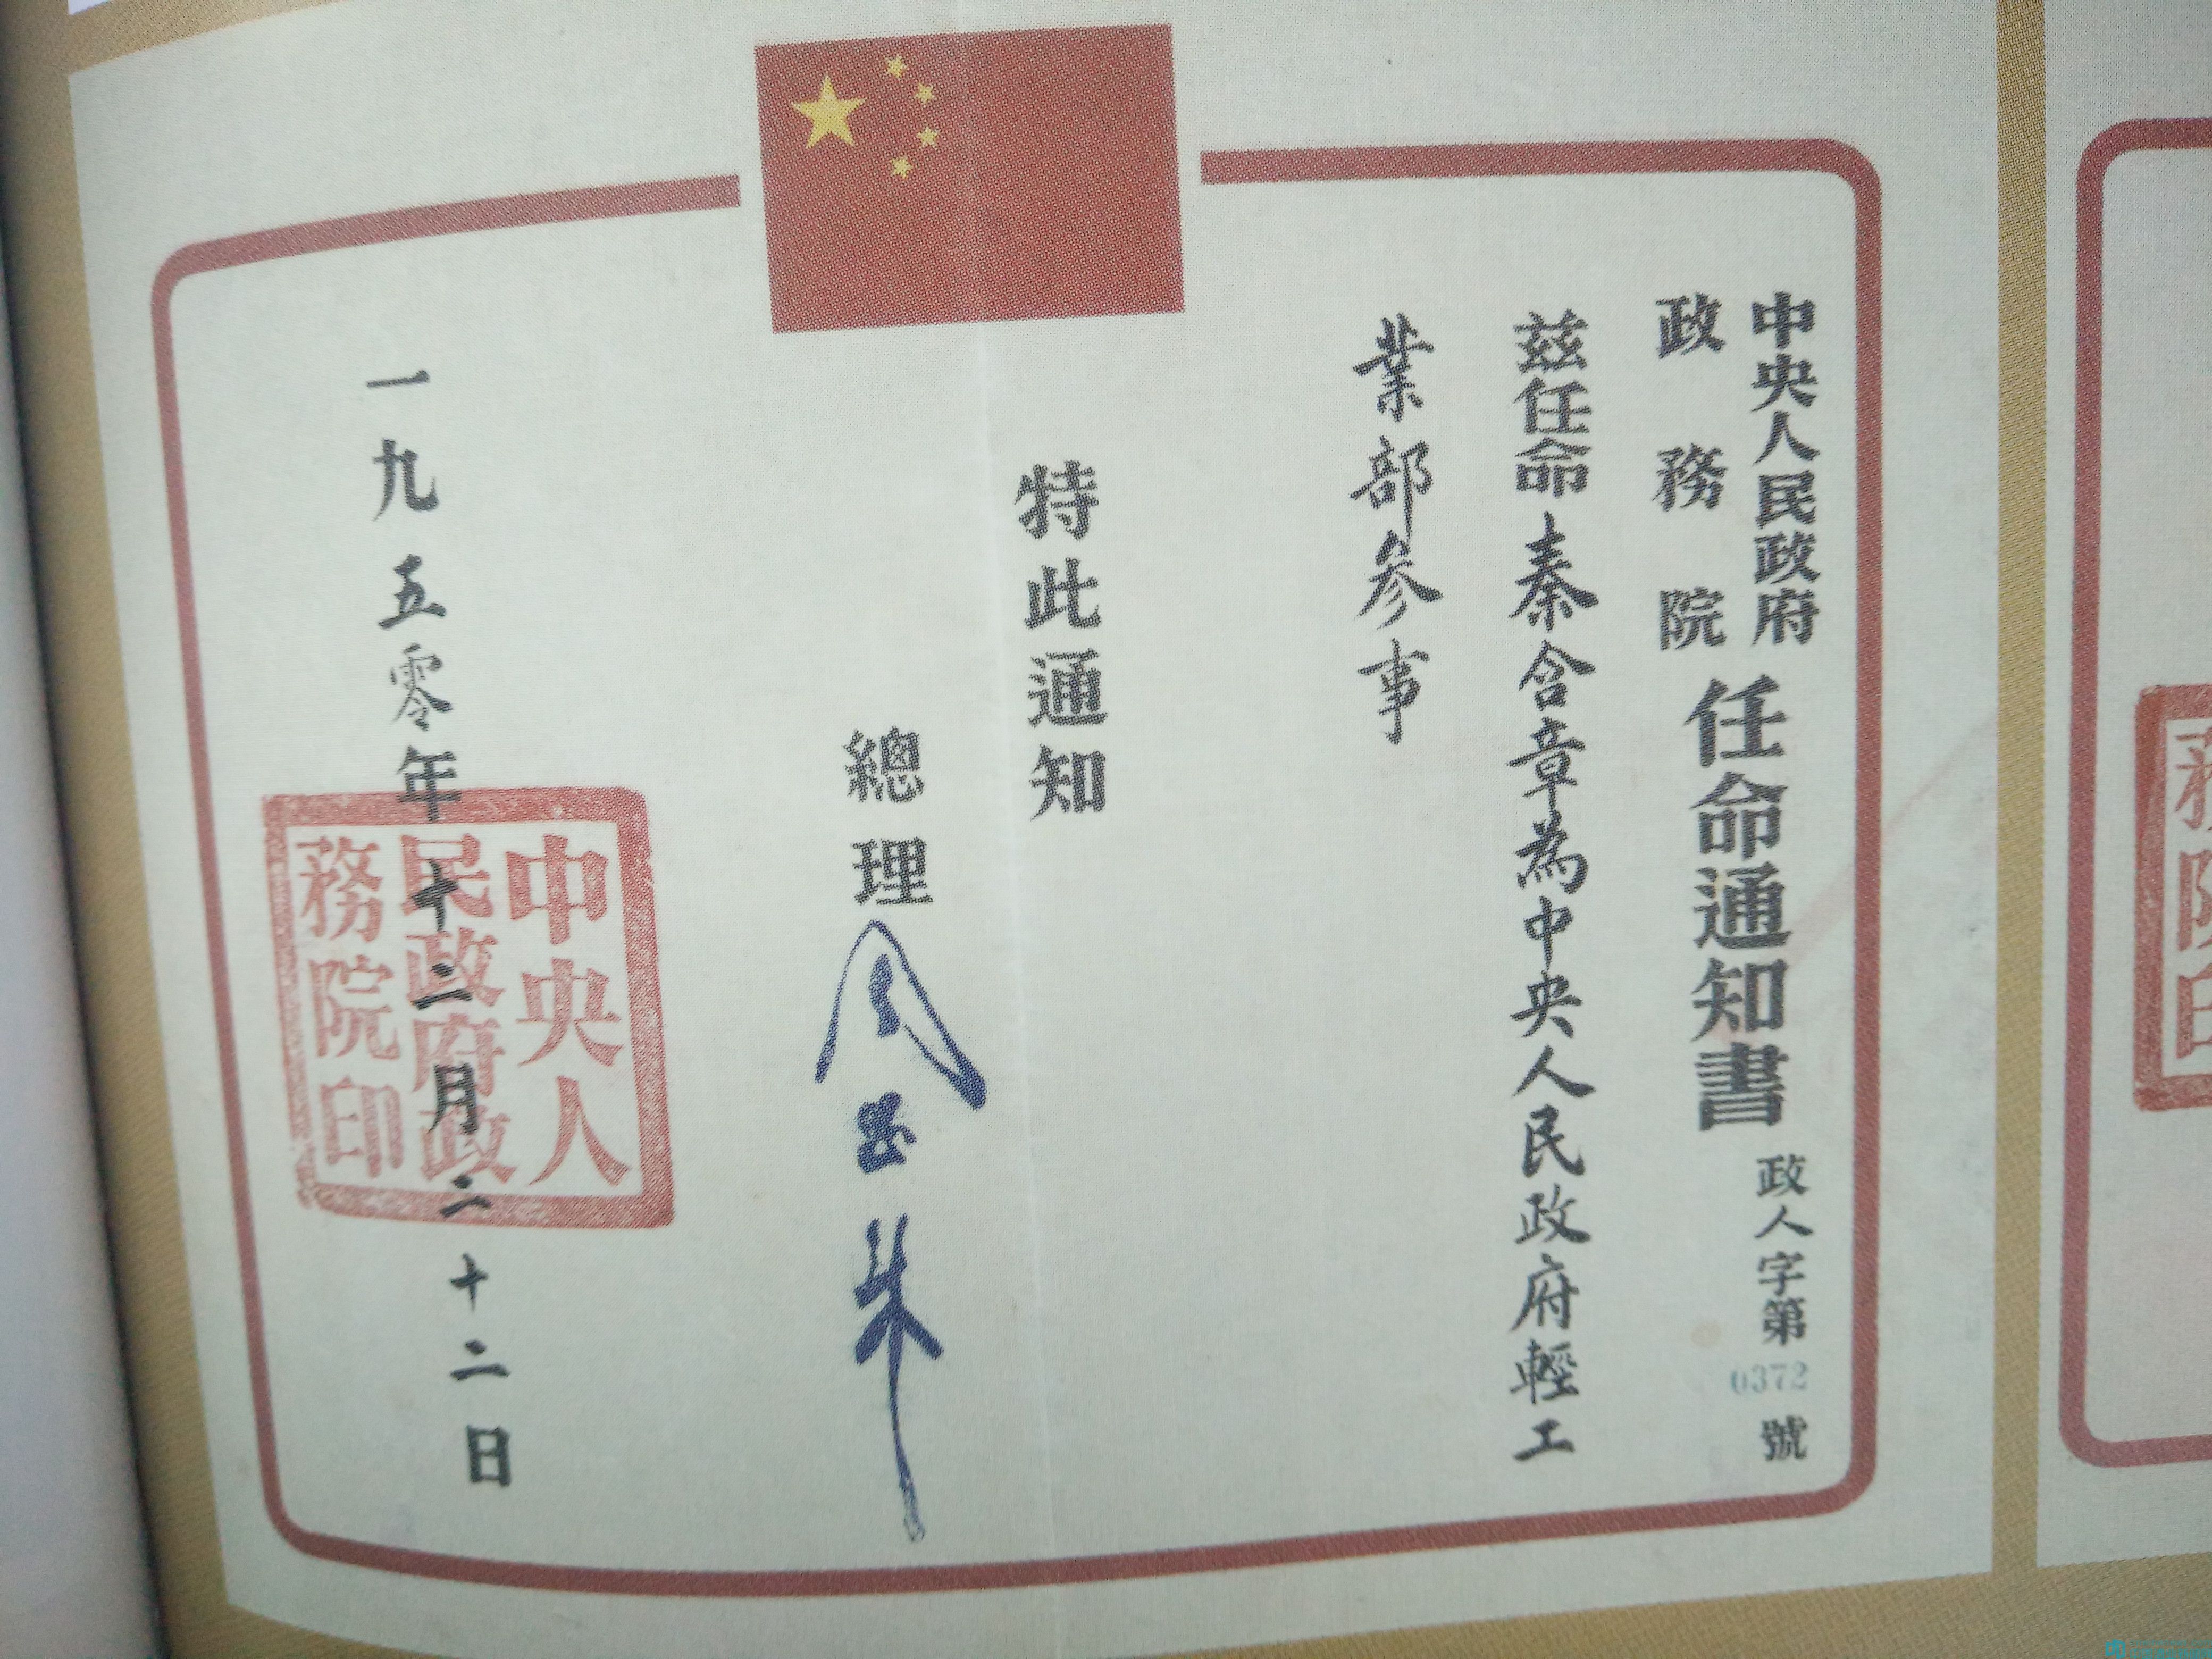 中央人民政府
政務院
任命通知書
政人字第0372號
茲任命秦含章為中央人民政府輕工
業部參事
特此通知
總理
周恩來
一九五零年十二月二十二日
中央人
民政府政
務院印
務
院
印